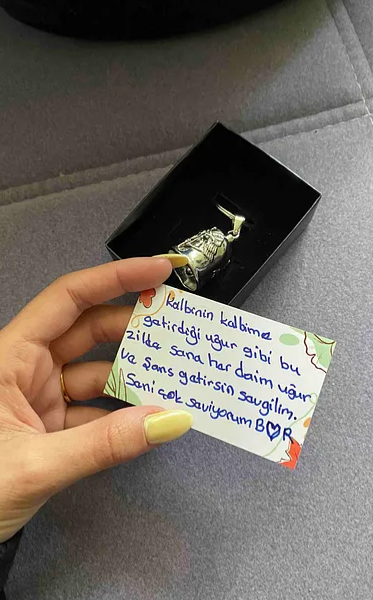 Kalbinin kalbime
getirdiği uğur gibi bu
zilde sana her daim uğur
ve şans getirsin sevgilim.
Seni çok seviyorum B♡R